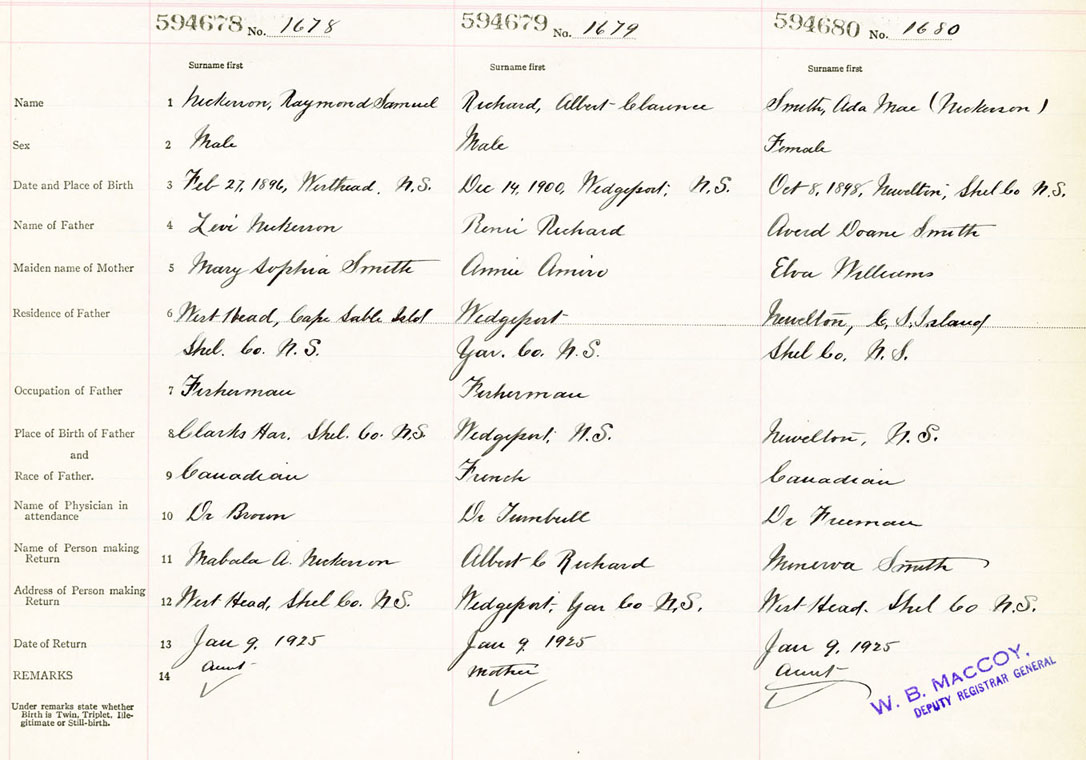 594678 No. 1678 594679 No. 1679 594680 No. 1680
Surname first Surname first Surname first
Name 1 Nickerson, Raymond Samuel Richard, Albert Clarence Smith, Ada Mae (Nickerson)
Sex 2 Male Male Female
Date and Place of Birth 3 Feb 27, 1896, Westhead, N.S. Dec 14, 1900, Wedgeport, N.S. Oct 8, 1898, Newelton, Shel Co N.S.
Name of Father 4 Levi Nickerson Remi Richard Averd Doane Smith
Maiden name of Mother 5 Mary Sophia Smith Annie Amiro Elva Williams
Residence of Father 6 West Head, Cape Sable Isld Wedgeport Newelton, C. S. Island
Shel. Co. N.S. Yar. Co. N.S. Shel Co. N.S.
Occupation of Father 7 Fisherman Fisherman
Place of Birth of Father 8 Clarks Har. Shel. Co. N.S. Wedgeport, N.S. Newelton, N.S.
and
Race of Father. 9 Canadian French Canadian
Name of Physician in
attendance 10 Dr Brown Dr Turnbull Dr Freeman
Name of Person making
Return 11 Mabala A. Nickerson Albert C Richard Minerva Smith
Address of Person making
Return 12 West Head, Shel Co. N.S. Wedgeport, Yar Co N.S. West Head. Shel Co N.S.
Date of Return 13 Jan 9, 1925 Jan 9, 1925 Jan 9, 1925
REMARKS 14 Aunt Mother Aunt
Under remarks state whether
Birth is Twin, Triplet, Ille-
gitimate or Still-birth.
W. B. MACCOY,
DEPUTY REGISTRAR GENERAL